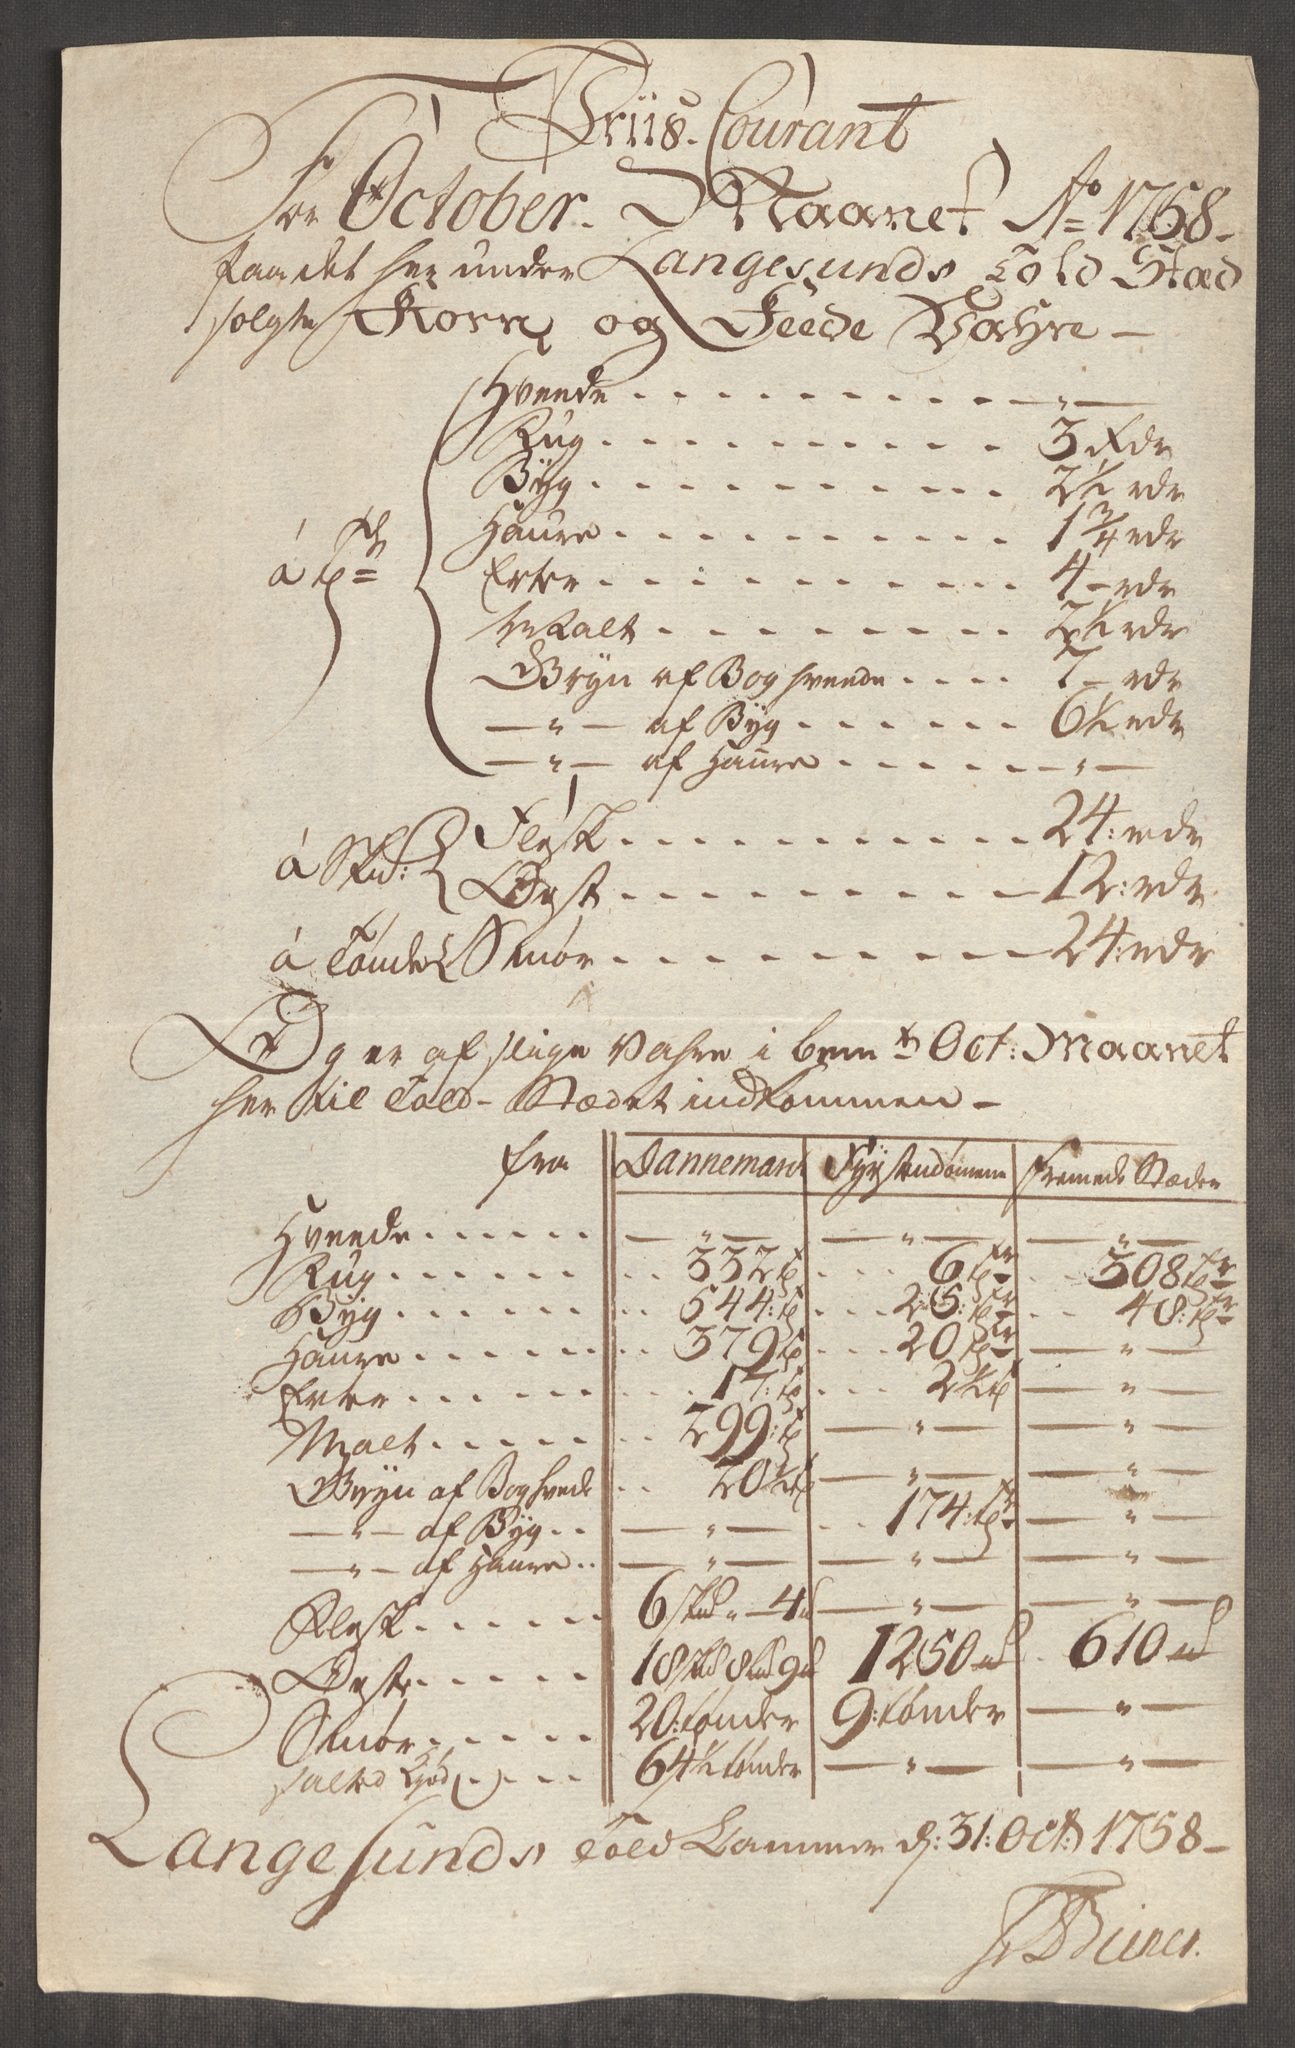 Priis. Courant
For October. Maanet Ao 1758.
paa det her under Langesunds Told Stæd
solgte Korn og Feede Vahre —
Hveede . . . . . . . . . . — " —
Rug . . . . . . . . . . 3 Rdr
Byg . . . . . . . . . . 2½ rdr
Haure . . . . . . . . . . 1¾ rdr
á tde
Erter . . . . . . . . . . 4 – rdr
Malt . . . . . . . . . . 2½ rdr
Gryn af Boghveede . . . . 7 – rdr
— " — af Byg . . . . . . . 6½ rdr
— " — af Haure . . . . . . — " —
á Skd: Flesk . . . . . . . . . . 24: rdr
Ost . . . . . . . . . . 12: rdr
á Tønde Smør . . . . . . . . . . 24: rdr
Og er af slige Vahre i bemte Oct: Maanet
her til Told-Stædet indkommen –
fra Dannemark Fyrstendømene fremede Stæder
Hveede . . . . . . — " — — " — — " —
Rug . . . . . . 332 t 6 tr 308 tr
Byg . . . . . . 544: t 28: tr 48: tr
Haure . . . . . . 379 t 20 tr — " —
Erter . . . . . . 17: t 2½ t — " —
Malt . . . . . . 299: t — " — — " —
Gryn af Boghvede . . 20½ t — " — — " —
— " — af Byg . . — " — 174: tr — " —
— " — af Haure . . — " — — " — — " —
Flesk . . . . . 6 skd " — 4 — " — — " —
Ost . . . . . 18 skd 8 9 1250 610
Smør . . . . . 20: tønder 9: tønder — " —
salted Kjød . . . . . 64½ tønder — " — — " —
Langesunds Told Cammer d: 31: Oct: 1758 –